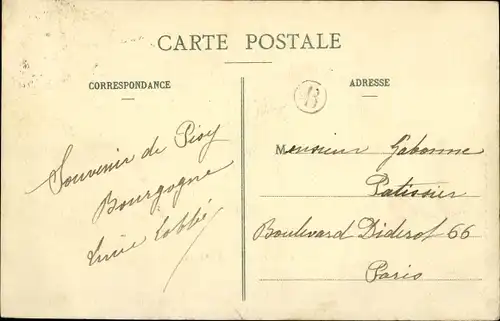 CARTE POSTALE
CORRESPONDANCE
ADRESSE
B
Souvenir de Pisy
Bourgogne
Labbé
Monsieur Gabonne
Patissier
Boulevard Diderot 66
Paris